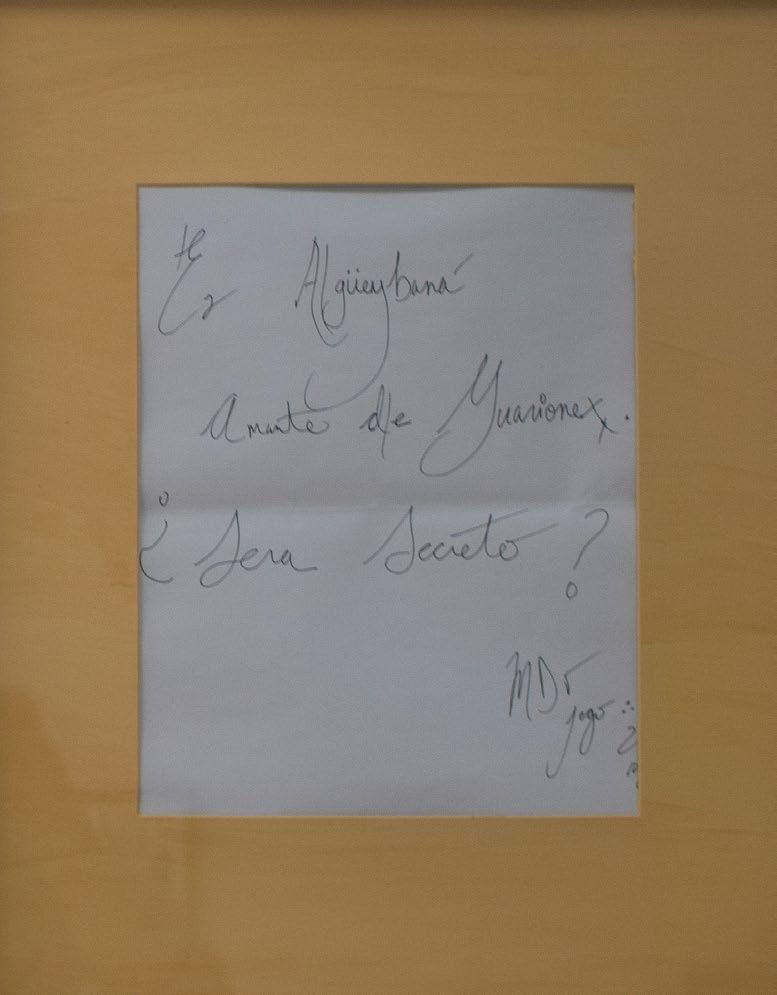 Es Algüeybaná
Amante de Guarionex.
¿Sera Secreto?
MDr
jogo